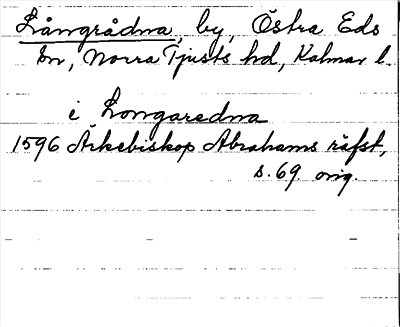 Långrådna, by, Östra Eds
sn, Norra Tjusts hd, Kalmar l.
i Longaredna
1596 Ärkebiskop Abrahams räfst,
s. 69. orig.